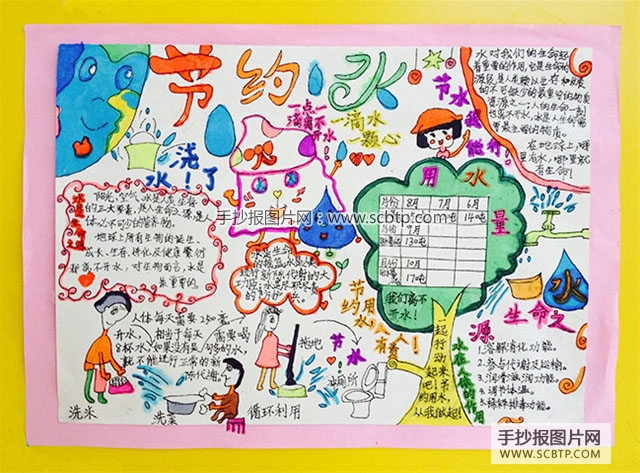 节约水
浇
水！了
一点一
滴离不
开水！
一滴水
一颗心
节水
我
能行。
水对我们的生命起
着重要的作用，它是生命的
源泉，是人类赖以生存和发展
的不可缺少的最重要的物质
资源之一，人的生命一刻
也离不开水，水是人生命需
要最主要的物质。
在地球上，哪
里有水，哪里就
有生命！
阳光、空气、水是人类生存
的三大要素，是人生命之源，是人
体必不可少的营养物。
地球上所有生物的诞生、
成长、生存、进化及健康繁衍
都离不开水，对生物而言，水是
最重要的。
手抄报图片网：www.scbtp.com
用水
量
月份 8月 7月 6月
吨 14吨
月份 9月
130吨
月份 10月
17吨
我们离不
开水！
节约用
水
人人
有责
人体每天需要250毫
升水，相当于每天需要喝
8杯水！如果没有足够的水，
就不能进行正常的新
陈代谢。
洗米
洗菜
拖地
节水
厕所
循环利用
一起
行动
起来
吧！节
约用水，
从我做起！
水
生命之
源
水在人体的作用
1.溶解消化功能。
2.参与代谢及运输。
3.润滑滋润功能。
4.调节体温。
5.稀释排毒功能。
手抄报图片网
WWW.SCBTP.COM